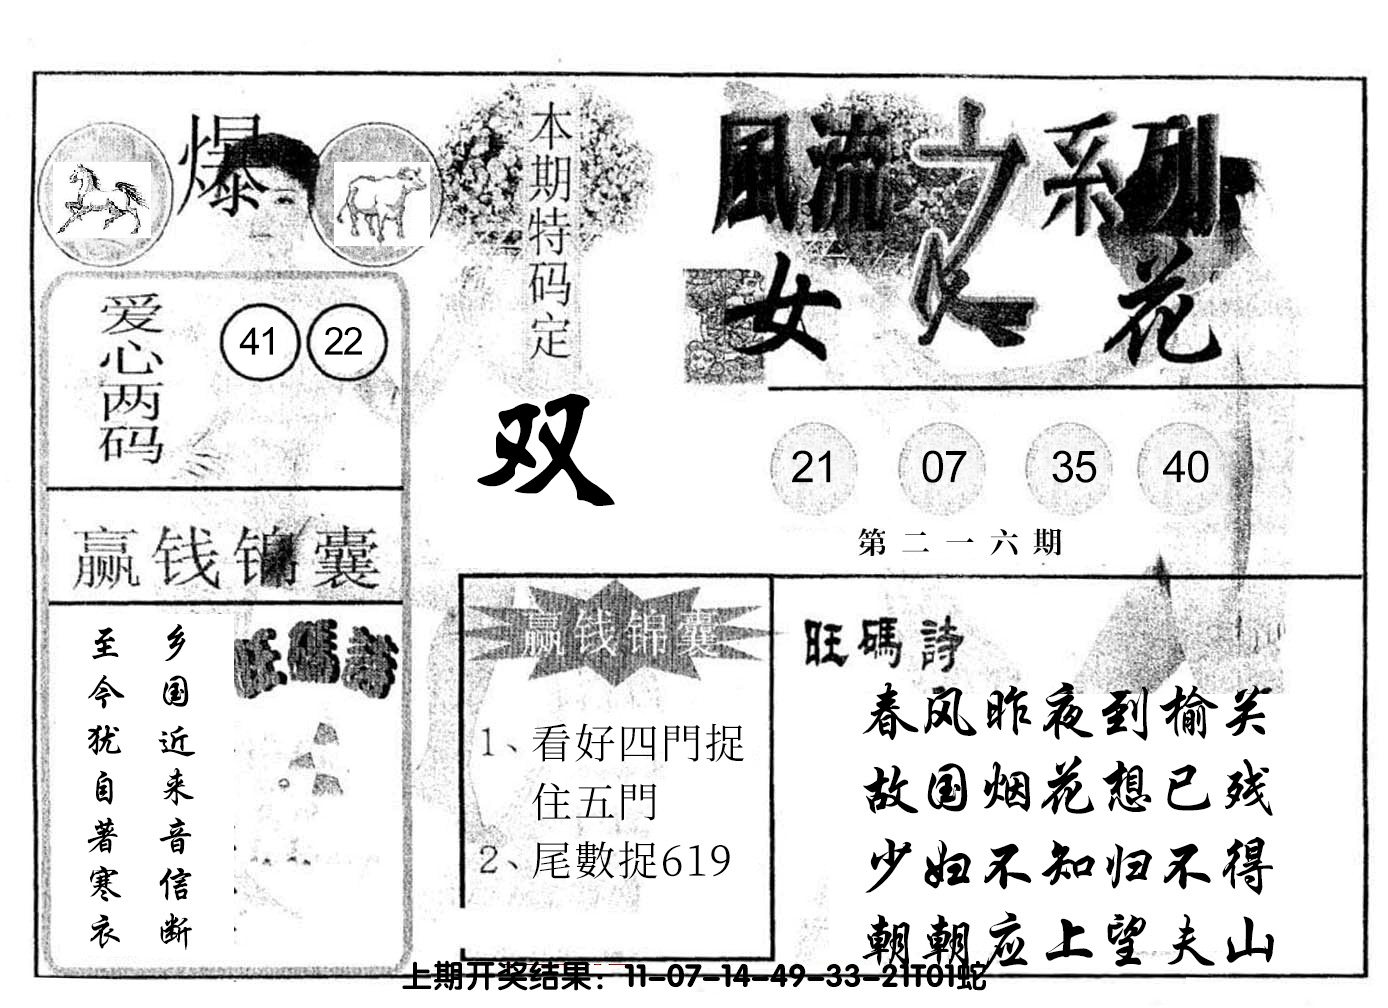 爆
本期特码定
双
風流之系列
女人花
爱心两码
41 22
21 07 35 40
第二一六期
赢钱锦囊
旺碼詩
乡国近来音信断
至今犹自著寒衣
赢钱锦囊
1、看好四門捉
住五門
2、尾數捉619
旺碼詩
春风昨夜到榆关
故国烟花想已残
少妇不知归不得
朝朝应上望夫山
上期开奖结果：11-07-14-49-33-21T01蛇